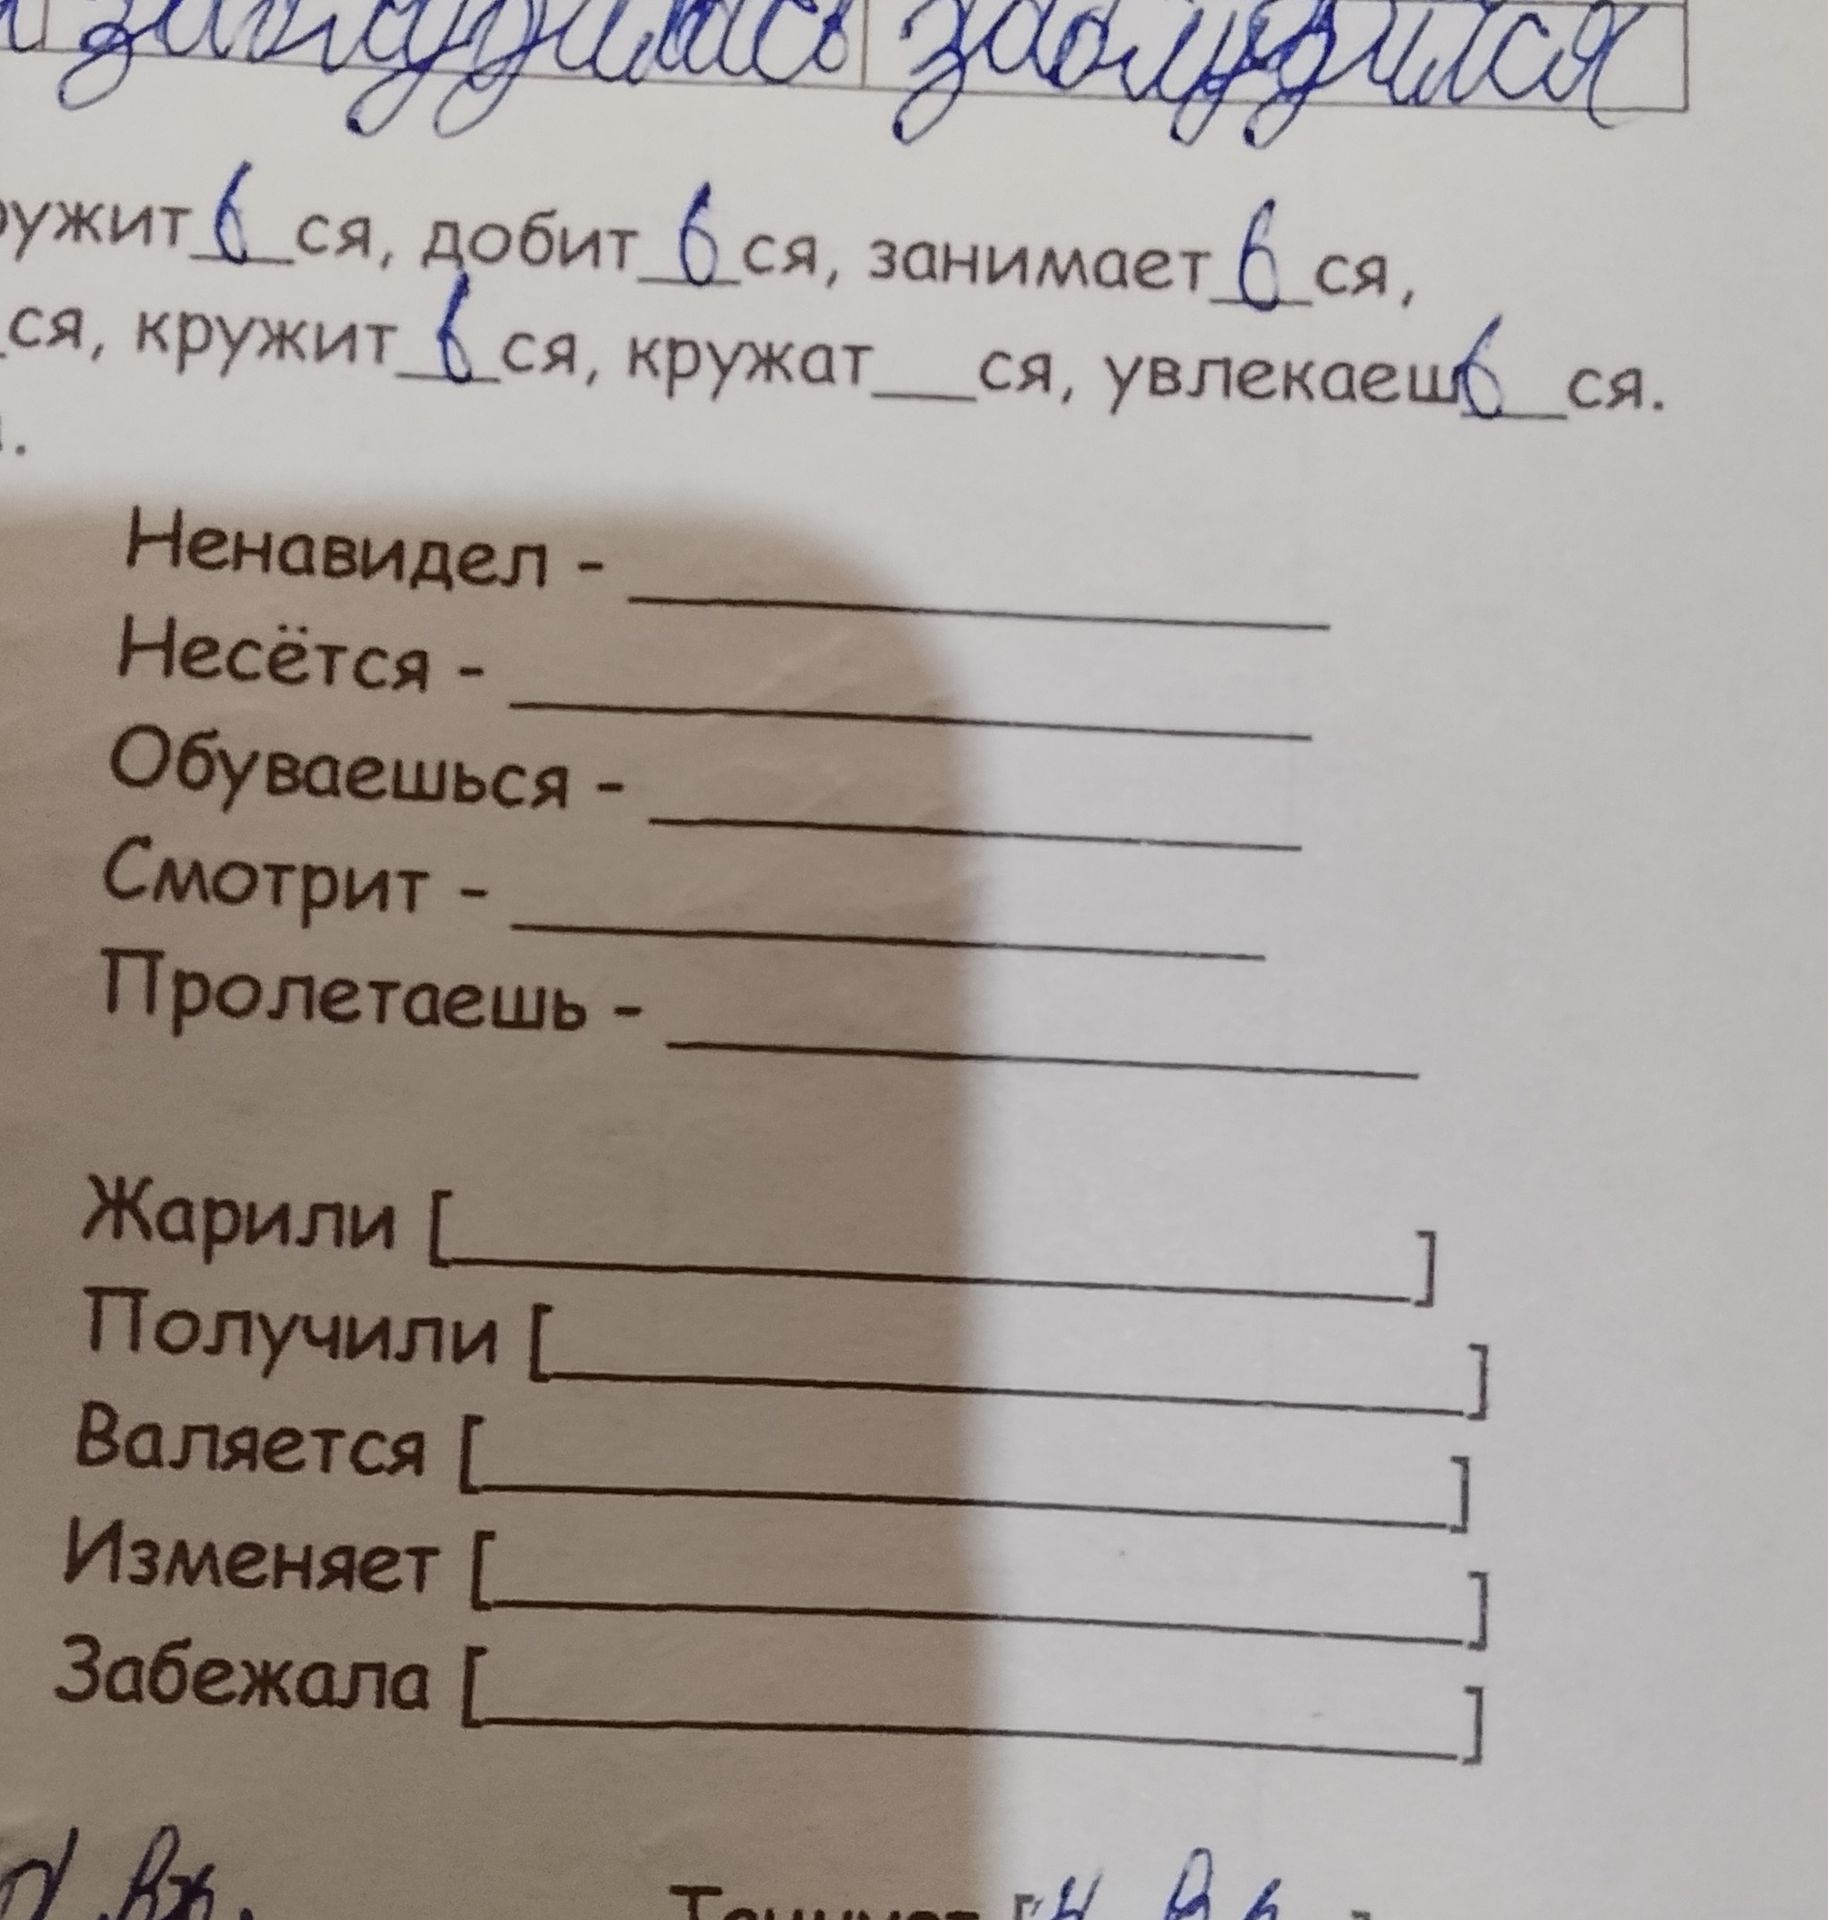 заблудилась заблудился
ружит ь ся, добит ь ся, занимает ь ся,
ся, кружит ь ся, кружат___ся, увлекаеш ь ся.
Ненавидел -
Несётся -
Обуваешься -
Смотрит -
Пролетаешь -
Жарили [ ]
Получили [ ]
Валяется [ ]
Изменяет [ ]
Забежала [ ]